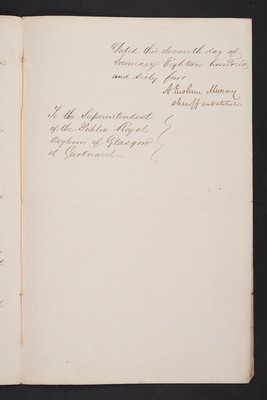 Dated this eleventh day of
January Eighteen hundred
and sixty four
Murray
Sheriff Substitute
To the Superintendent
of the Public Royal
Asylum of Glasgow
at Gartnavel